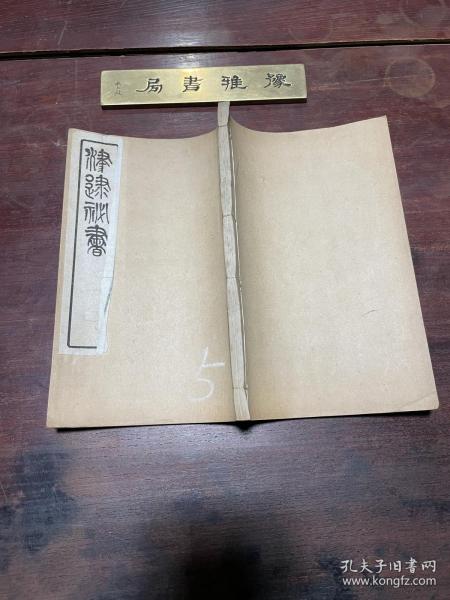 豫雅書局
津逮祕書
5
孔夫子旧书网
www.kongfz.com